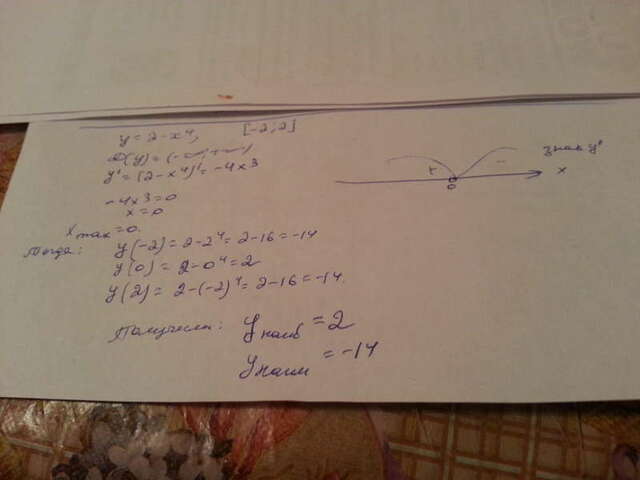 y = 2 - x⁴, [-2; 2]
D(y) = (-∞; +∞)
y' = (2 - x⁴)' = -4x³
-4x³ = 0
x = 0
x max = 0.
Тогда: y(-2) = 2 - 2⁴ = 2 - 16 = -14
y(0) = 2 - 0⁴ = 2
y(2) = 2 - (-2)⁴ = 2 - 16 = -14.
Получили: y наиб = 2
y наим = -14
знак y'
+ -
0 x